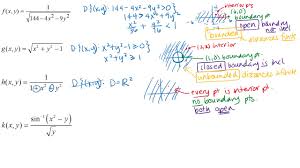 f(x,y) = 1/√(144−4x²−9y²)
D {(x,y): 144−4x²−9y²>0}
144>4x²+9y²
interior pts
(6,0)
boundary pt
open
boundary not incl
bounded
distances finite
g(x,y) = √(x²+y²−1)
D {(x,y): x²+y²−1≥0}
x²+y²≥1
interior pt
boundary pt
closed
boundary is incl
unbounded
distances infinite
h(x,y) = 1/(1+x²+y²)
D = ℝ²
every pt is interior pt
no boundary pts.
both open
k(x,y) = sin⁻¹(x²−y)/√y